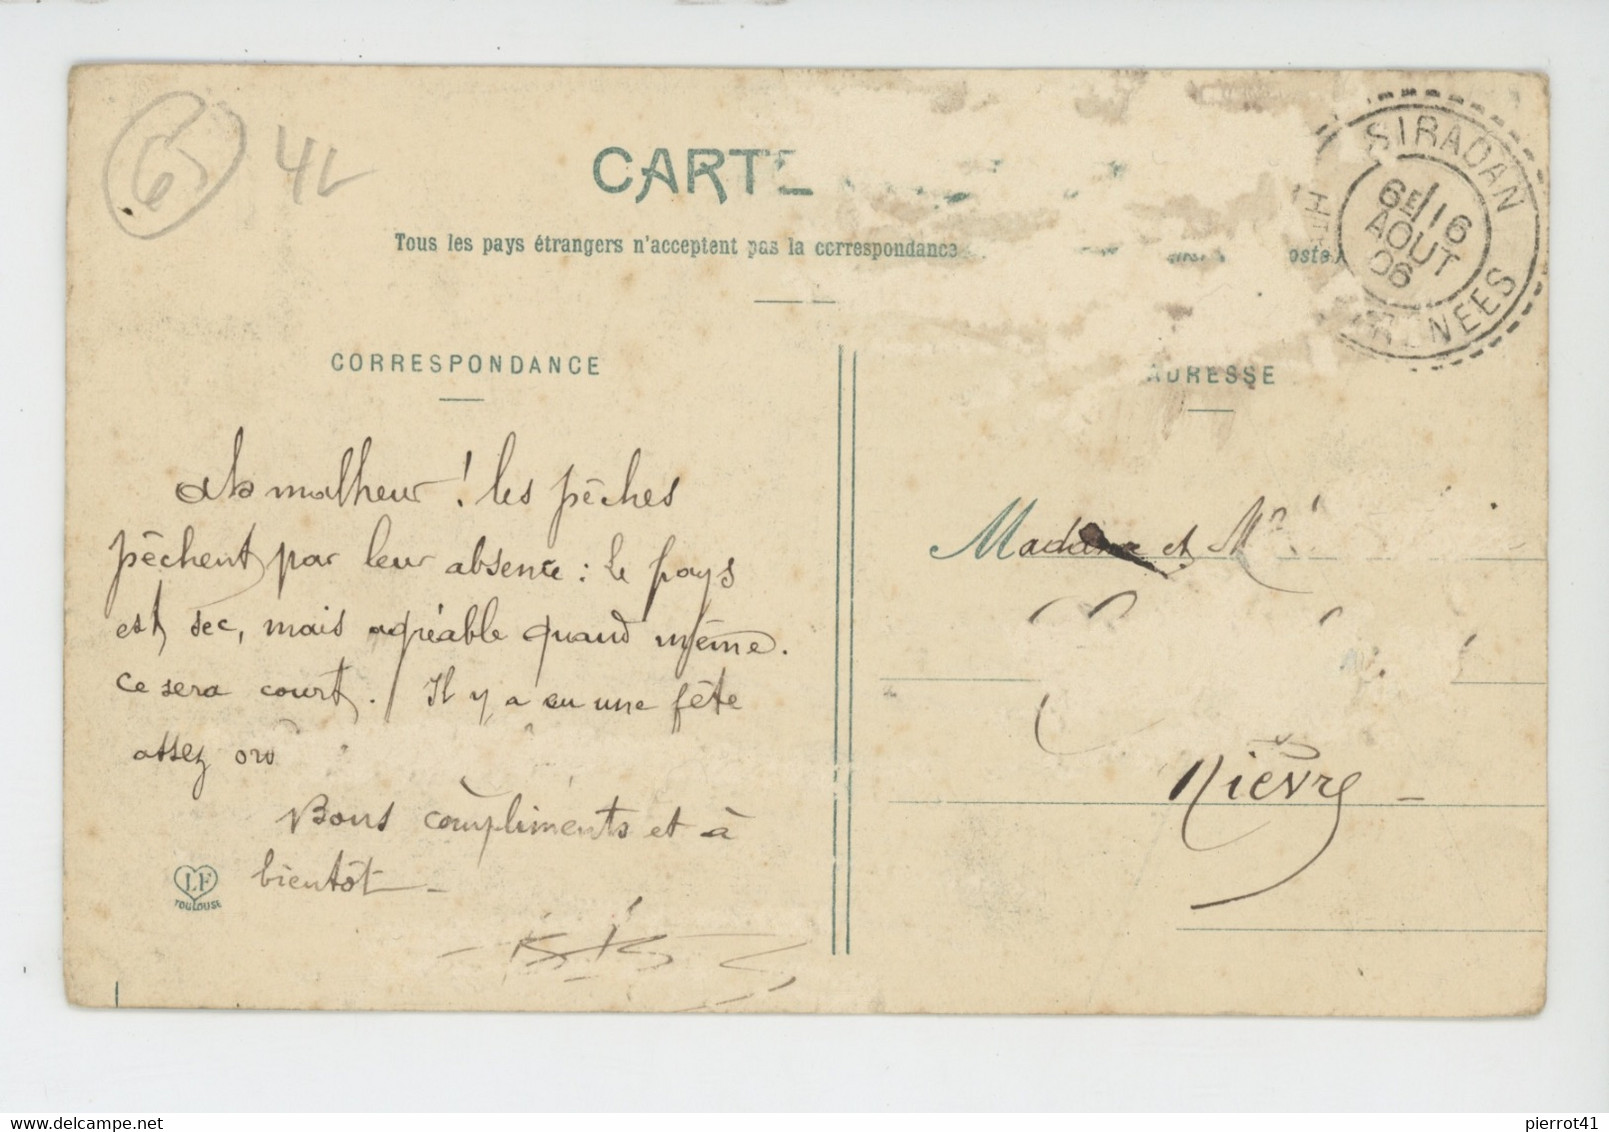 65
4L
CARTE
Tous les pays étrangers n'acceptent pas la correspondance
SIRADAN
6E 16
AOUT
06
CORRESPONDANCE
ADRESSE
malheur ! les pêches
pêchent par leur absence : le pays
est sec, mais agréable quand même.
ce sera court. Il y a eu une fête
assez
Bons compliments et à
bientôt -
Madame et Mr
Nièvre -
LF
TOULOUSE
delcampe.net
pierrot41